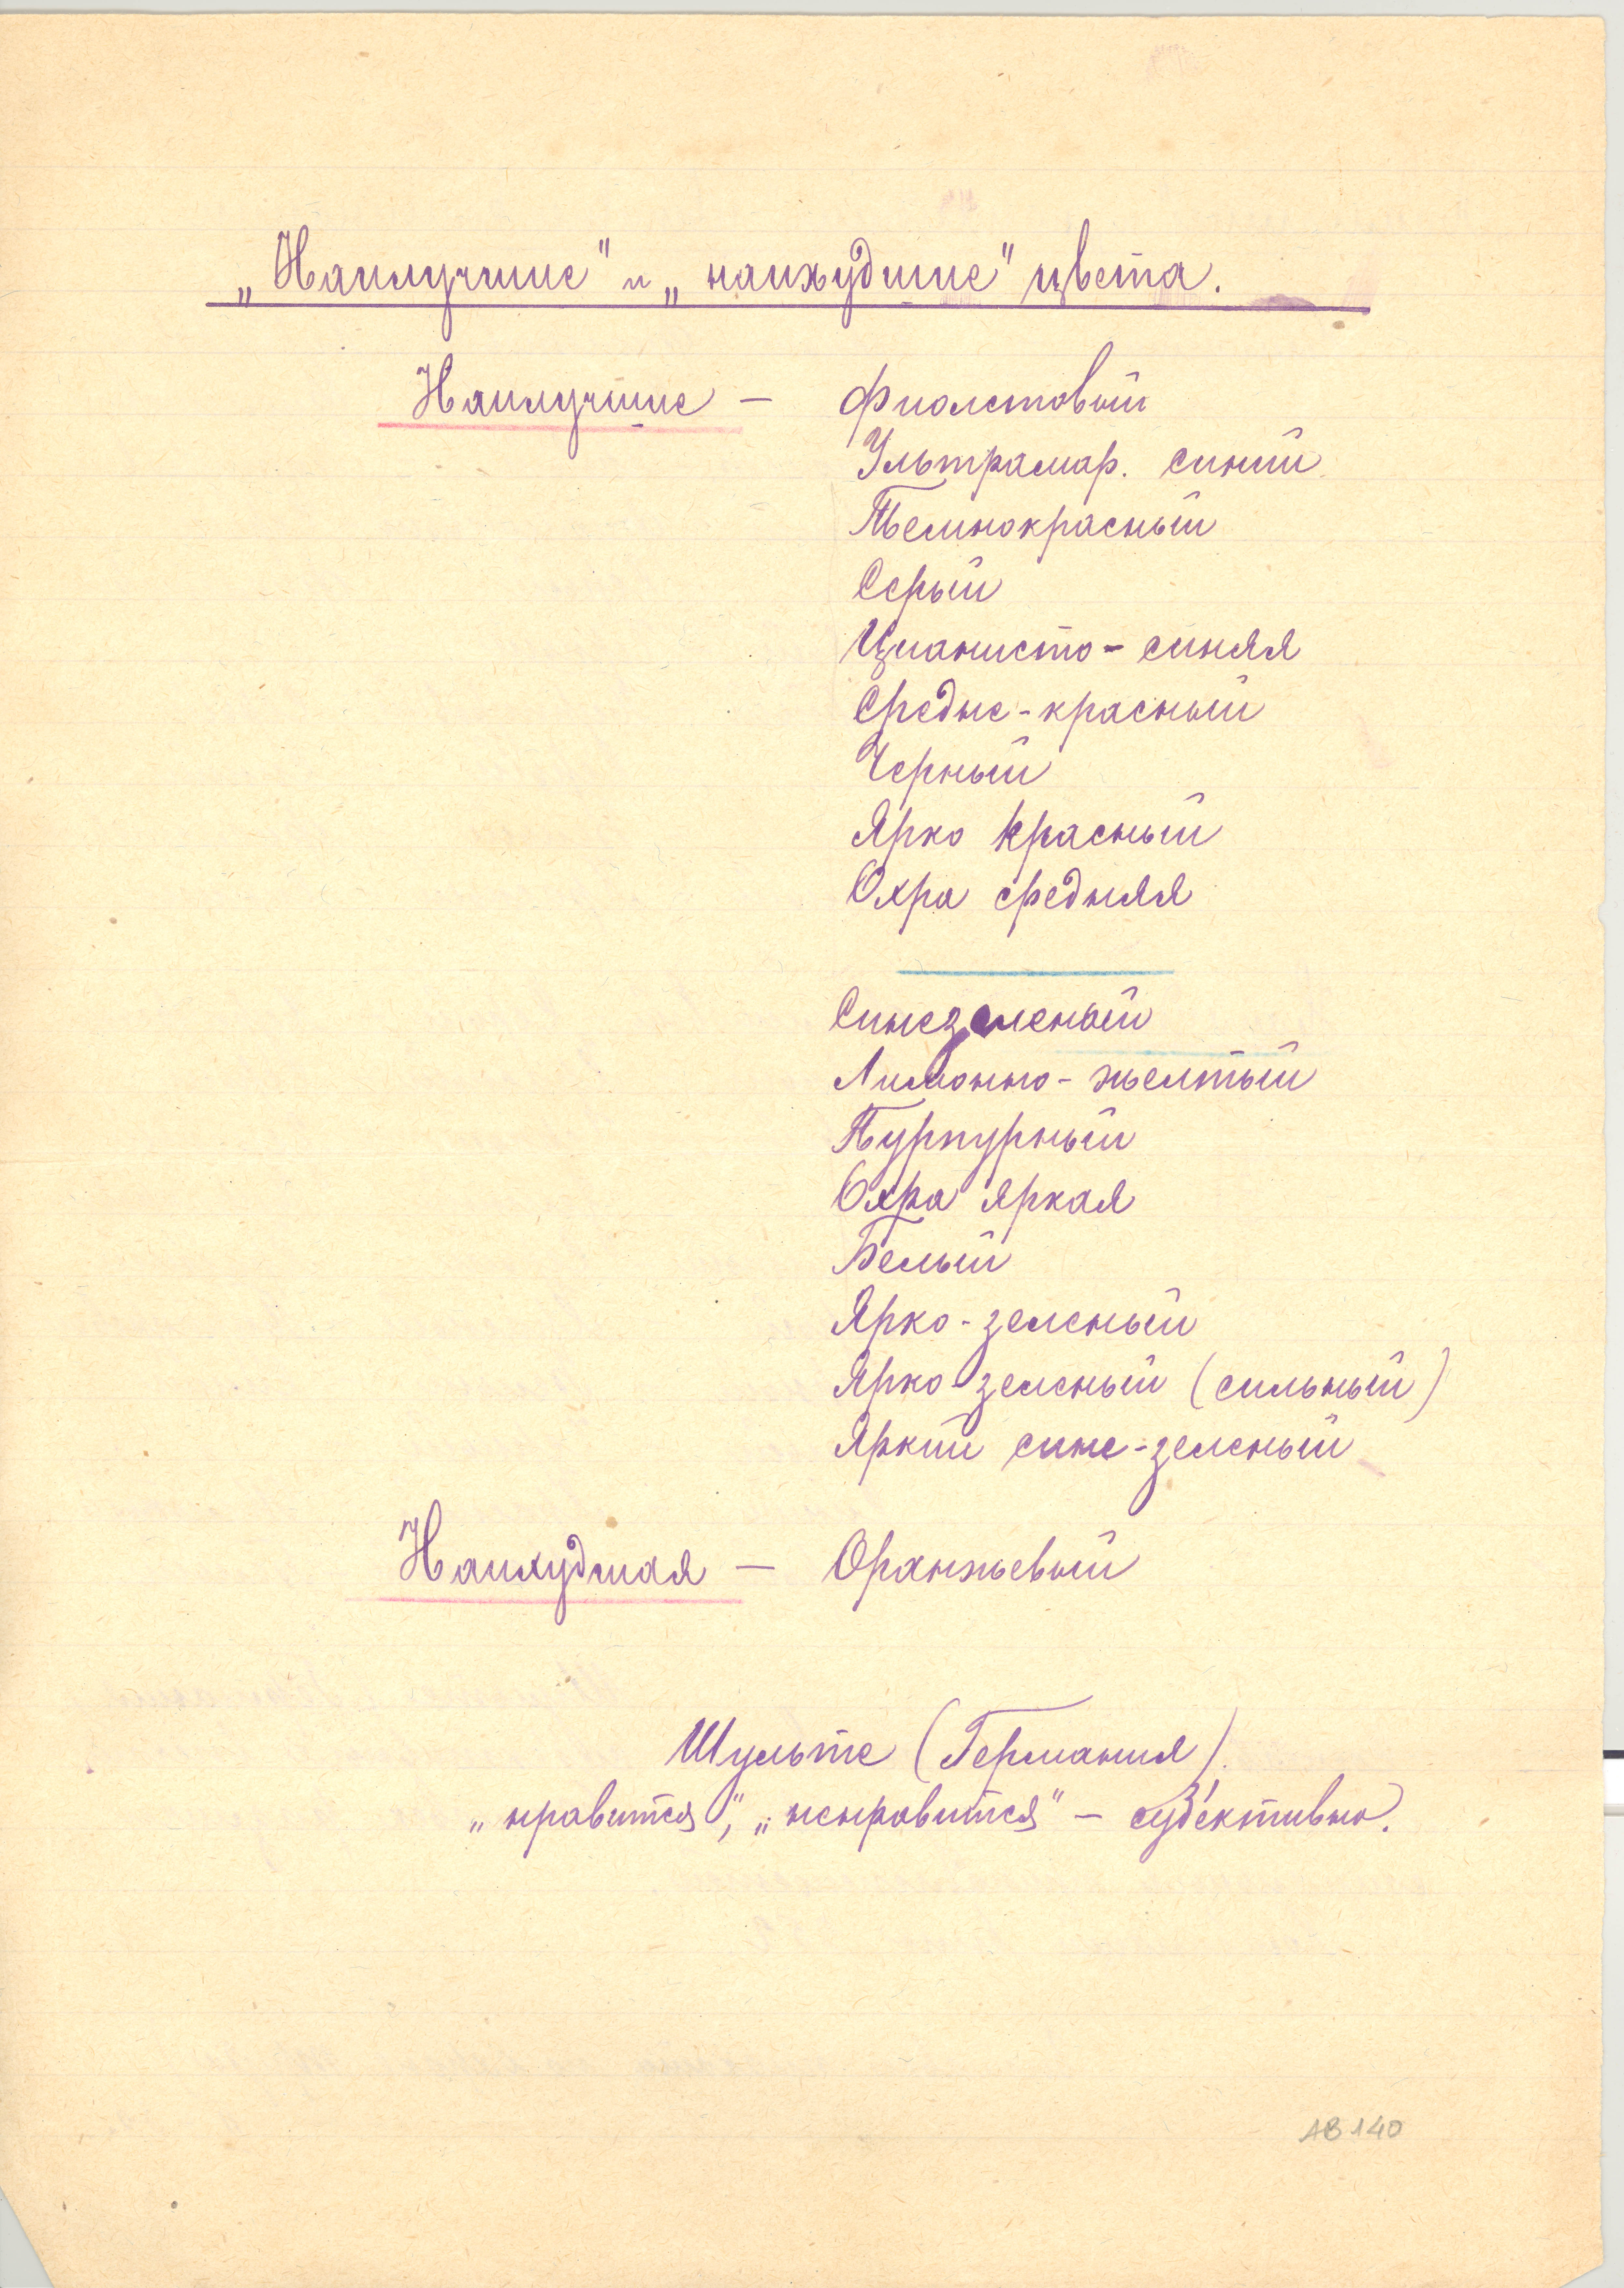 „Наилучшие" и „наихудшие" цвета.
Наилучшие – Фиолетовый
Ультрамар. синий
Темнокрасный
Серый
Цианисто-синяя
Средне-красный
Черный
Ярко красный
Охра средняя
Синезеленый
Лимонно-желтый
Пурпурный
Охра яркая
Белый
Ярко-зеленый
Ярко-зеленый (сильный)
Яркий сине-зеленый
Наихудшая – Оранжевый
Шульте (Германия).
„нравится", „ненравится" – суб'ективно.
АВ 140